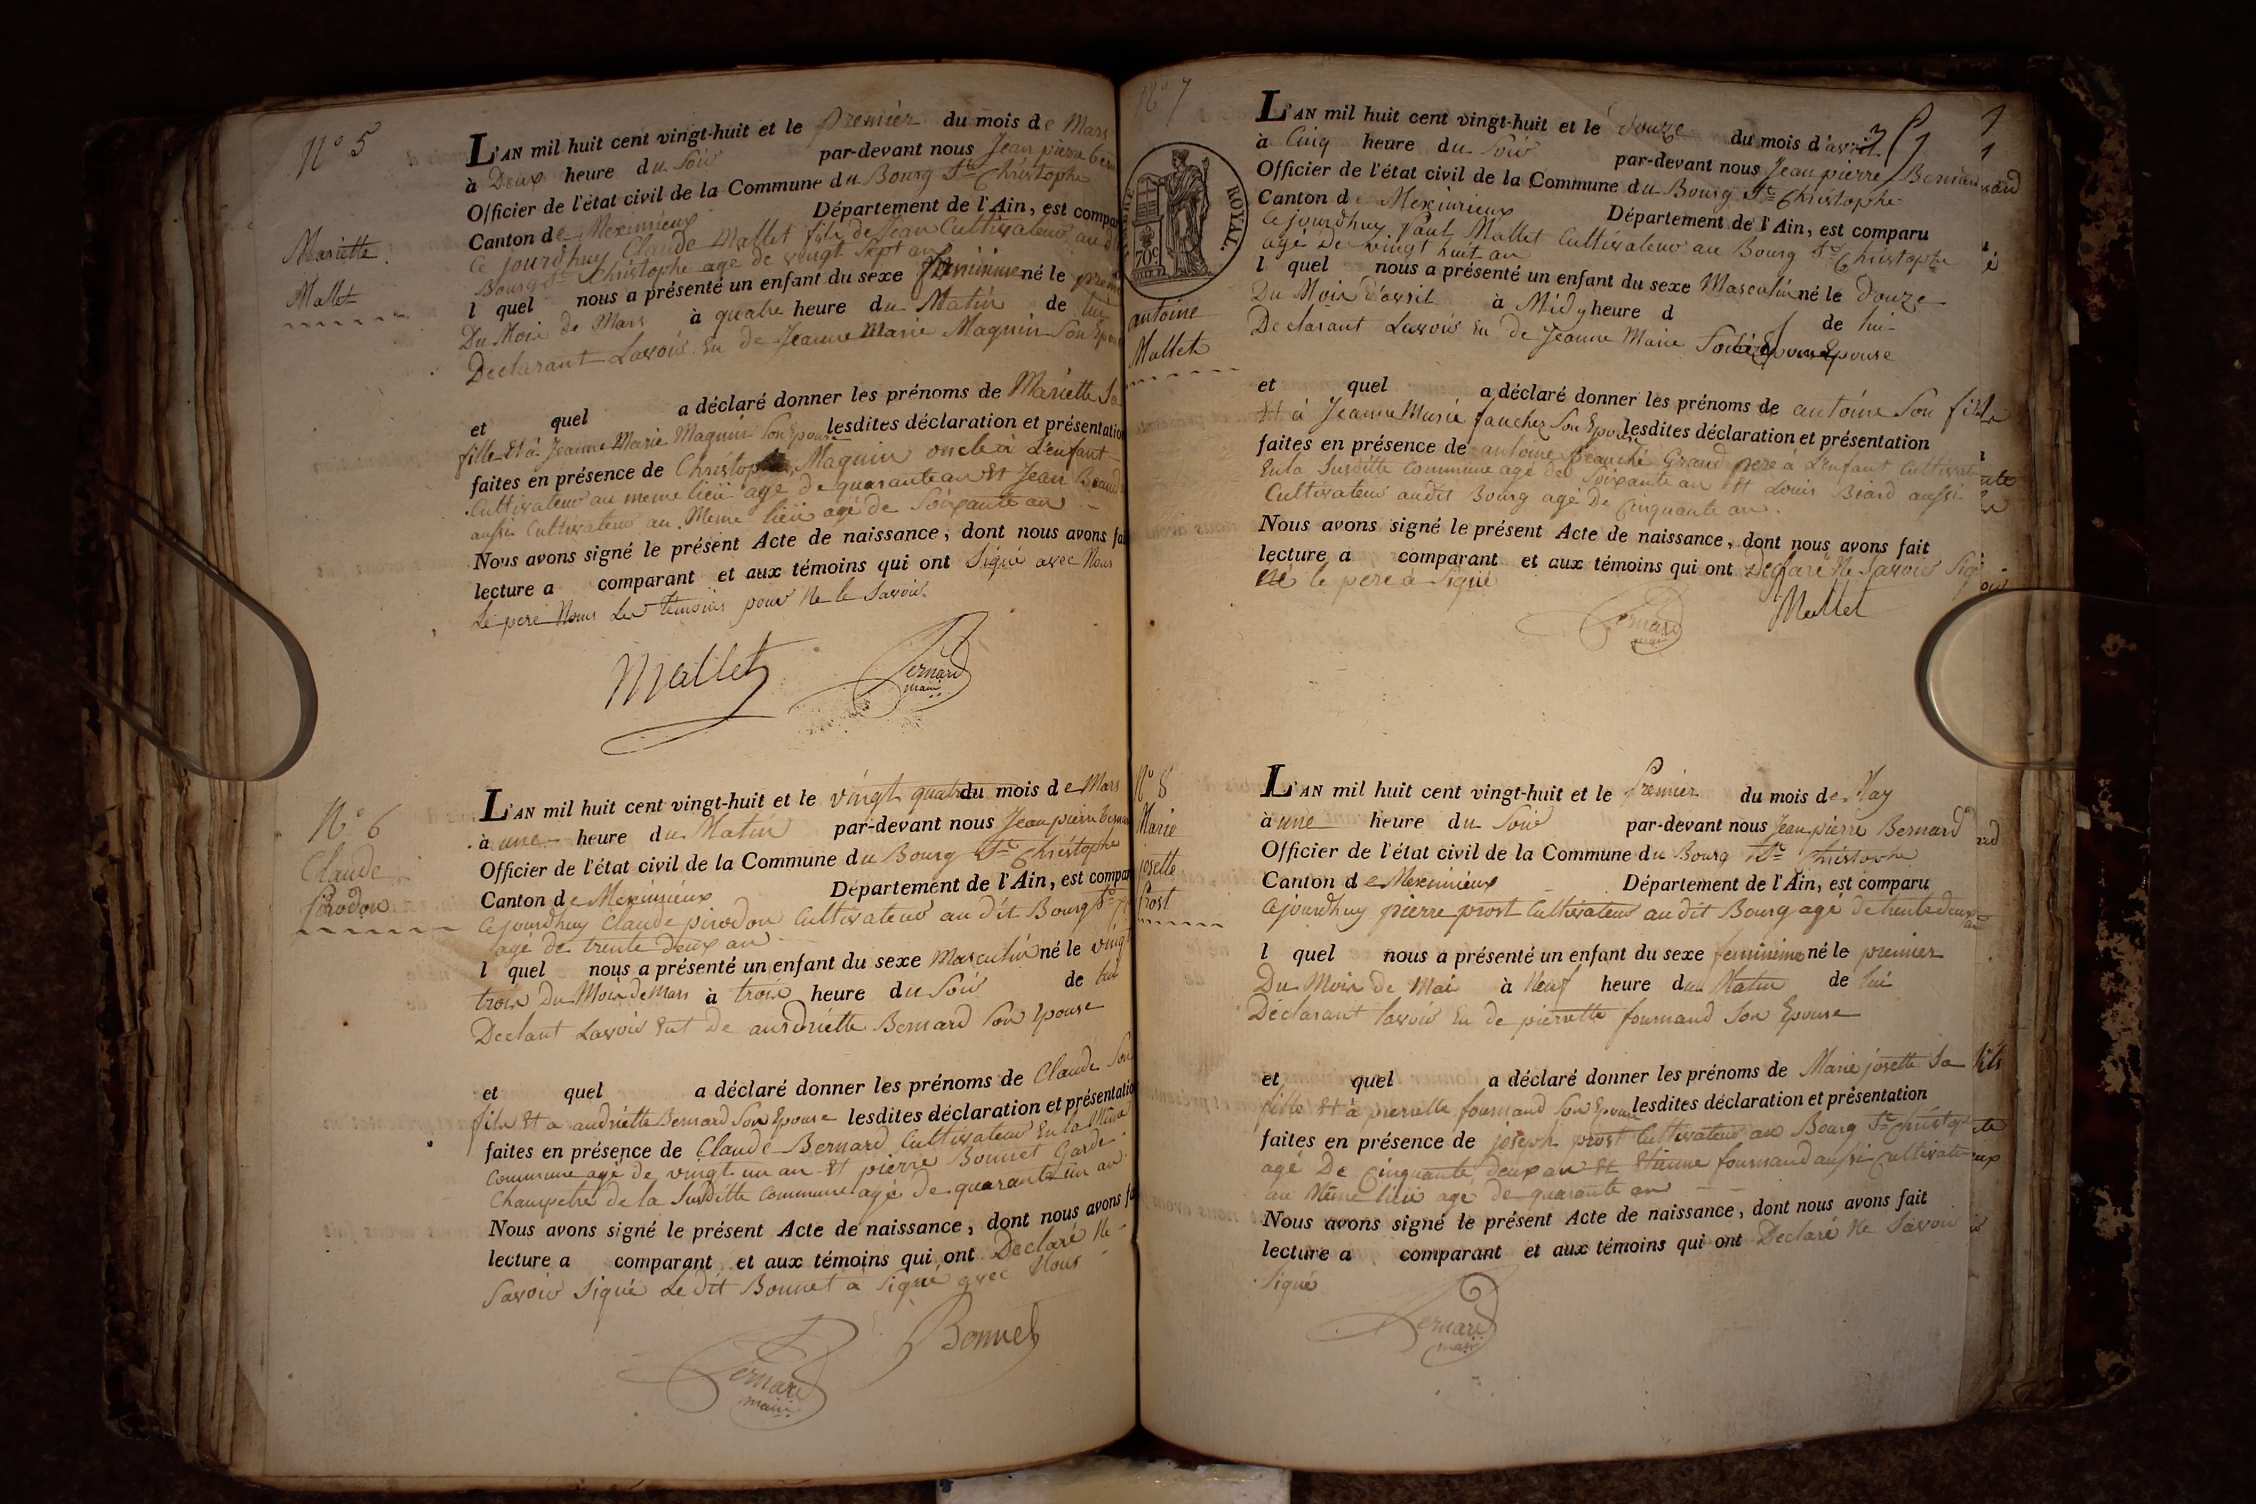 N° 5
Mariette
Mallet
L'AN mil huit cent vingt-huit et le premier du mois de Mars
à Deux heure du Soir par-devant nous Jean pierre
Officier de l'état civil de la Commune du Bourg St Christophe
Canton de Meximieux Département de l'Ain, est compa
Ce jourdhuy Claude Mallet fils de Jean Cultivateur au
Bourg St Christophe age de vingt Sept an
l quel nous a présenté un enfant du sexe feminime né le
Du Mois de Mars à quatre heure du Matin de lui
Declarant Lavoir Eu de Jeanne Marie Magnin Son Epouse
et quel a déclaré donner les prénoms de Mariette Sa
fille Et à Jeanne Marie Magnin Son Epouse lesdites déclaration et présentation
faites en présence de Christophe Magnin oncle à L'enfant
Cultivateur au meme lieu agé de quarante an Et Jean
aussi Cultivateur au Meme lieu agé de Soixante an
Nous avons signé le présent Acte de naissance, dont nous avons fai
lecture a comparant et aux témoins qui ont Signé avec Nous
Le pere Nous Les temoins pour Ne le Savoir
Mallet Bernard
maire
N° 6
Claude
pirodon
L'AN mil huit cent vingt-huit et le vingt quatre du mois de Mars
à une heure du Matin par-devant nous Jean pierre
Officier de l'état civil de la Commune du Bourg St Christophe
Canton de Meximieux Département de l'Ain, est compar
Cejourdhuy Claude pirodon Cultivateur au dit Bourg St
agé de trente Deux an
l quel nous a présenté un enfant du sexe Masculin né le vingt
trois Du Mois de Mars à trois heure du Soir de lui
Declant Lavoir Eut De audriette Bernard Son Epouse
et quel a déclaré donner les prénoms de Claude Son
fils Et a audriette Bernard Son Epouse lesdites déclaration et présentatio
faites en présence de Claude Bernard Cultivateur En la Meme
Commune agé de vingt un an Et pierre Bonnet Garde
Champetre de la Susditte Commune agé de quarante un an
Nous avons signé le présent Acte de naissance, dont nous avons fa
lecture a comparant et aux témoins qui ont Declaré Ne
Savoir Signé Le dit Bonnet a Signé avec Nous
Bonnet
Bernard
maire
N° 7
ROYAL
70c
antoine
Mallet
L'AN mil huit cent vingt-huit et le Douze du mois d'avril
à Cinq heure du Soir par-devant nous Jean pierre Bernard
Officier de l'état civil de la Commune du Bourg St Christophe
Canton de Meximieux Département de l'Ain, est comparu
Cejourdhuy Paul Mallet Cultivateur au Bourg St Christophe
agé De vingt huit an
l quel nous a présenté un enfant du sexe Masculin né le Douze
Du Mois D'avril à Midy heure d de lui
Declarant Lavoir Eu de Jeanne Marie Epouse
et quel a déclaré donner les prénoms de antoine Son fils
Et à Jeanne Marie faucher Son Epouse lesdites déclaration et présentation
faites en présence de antoine Grand pere à L'enfant Cultivat
En la Susditte Commune agé de Soixante an Et Louis Biard aussi
Cultivateur audit Bourg agé De Cinquante an.
Nous avons signé le présent Acte de naissance, dont nous avons fait
lecture a comparant et aux témoins qui ont Declaré Ne Savoir Sig
né le pere a Signé
Bernard Mallet
maire
N° 8
Marie
josette
Prost
L'AN mil huit cent vingt-huit et le Premier du mois de May
à une heure du Soir par-devant nous Jean pierre Bernard
Officier de l'état civil de la Commune du Bourg St Christophe
Canton de Meximieux Département de l'Ain, est comparu
Cejourdhuy pierre prost Cultivateur au dit Bourg agé de trente deux
an
l quel nous a présenté un enfant du sexe feminime né le premier
Du Mois de Mai à Neuf heure du Matin de lui
Déclarant Lavoir Eu de pierrette fournand Son Epouse
et quel a déclaré donner les prénoms de Marie josette Sa
fille Et à pierrette fournand Son Epouse lesdites déclaration et présentation
faites en présence de joseph prost Cultivateur au Bourg St Christophe
agé De Cinquante deux an Et Etienne fournand aussi Cultivate
au Meme lieu agé de quarante an
Nous avons signé le présent Acte de naissance, dont nous avons fait
lecture a comparant et aux témoins qui ont Declaré Ne Savoir
Signé
Bernard
maire